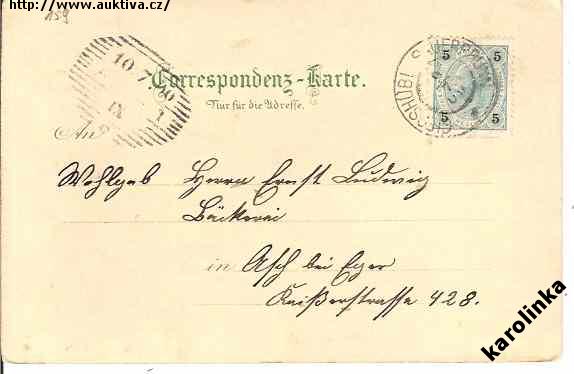 http://www.auktiva.cz/
159
5 5
10 7 00
IX
1
Correspondenz-Karte.
Nur für die Adresse.
5 5
An
Wohlgeb Herrn Ernst Ludwig
Bäckerei
in Asch bei Eger
Kaißerstrasse 428.
karolinka